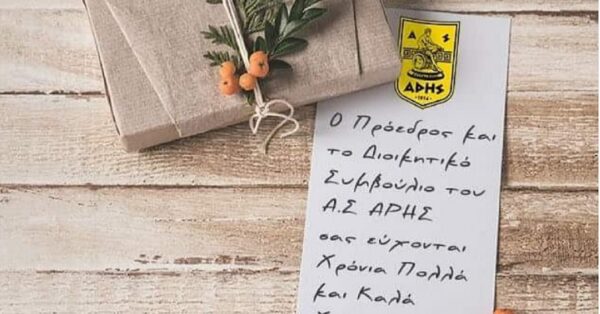 Α Σ
ΑΡΗΣ
1914
Ο Πρόεδρος και
το Διοικητικό
Συμβούλιο του
Α.Σ ΑΡΗΣ
σας εύχονται
Χρόνια Πολλά
και Καλά